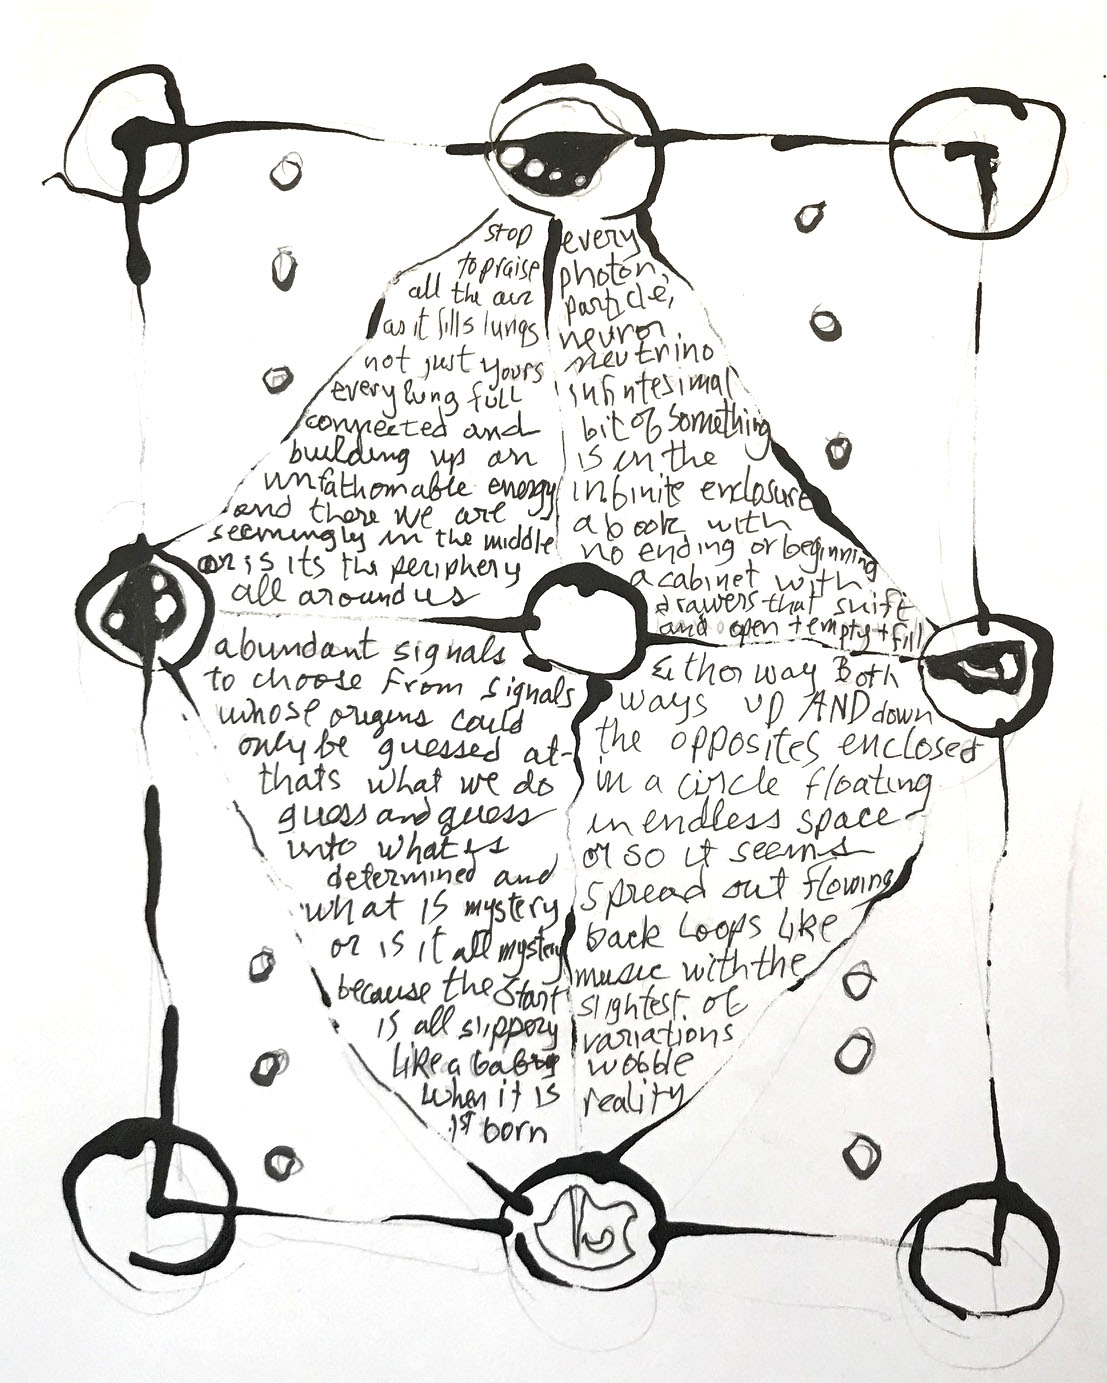 stop
to praise
all the air
as it fills lungs
not just yours
every lung full
connected and
building up an
unfathomable energy
and there we are
seemingly in the middle
or is its the periphery
all around us
every
photon,
particle,
neuron,
neutrino
infintesimal
bit of something
is in the
infinite enclosure
a book with
no ending or beginning
a cabinet with
drawers that shift
and open + empty + fill
abundant signals
to choose from signals
whose origins could
only be guessed at-
thats what we do
guess and guess
into what is
determined and
what is mystery
or is it all mystery
because the start
is all slippery
like a baby
when it is
1st born
Either way Both
ways up AND down
the opposites enclosed
in a circle floating
in endless space-
or so it seems
spread out flowing
back Loops Like
music with the
slightest of
variations
wobble
reality